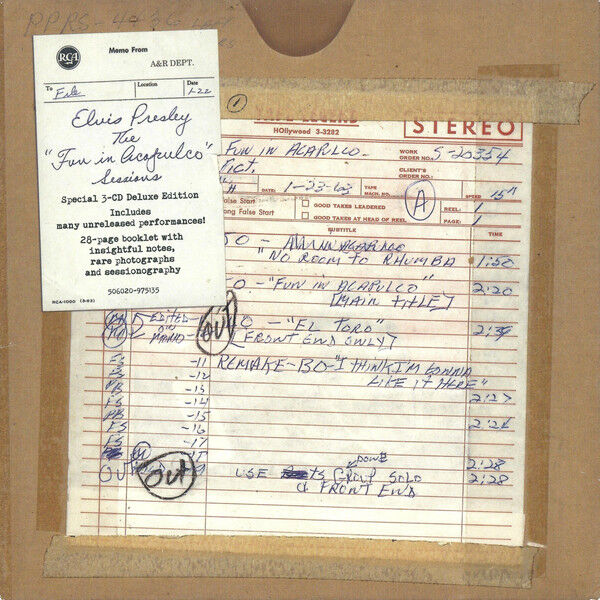 PPRS-4
RCA
Memo From
A&R DEPT.
To
File
Location
Date
1-22
Elvis Presley
The
"Fun in Acapulco"
Sessions
Special 3-CD Deluxe Edition
Includes
many unreleased performances!
28-page booklet with
insightful notes,
rare photographs
and sessionography
506020-975135
RCA-1000 (5-62)
1
HOllywood 3-3282
STEREO
FUN IN ACAPULCO-
WORK
ORDER NO.:
S-20354
CLIENT'S
ORDER NO.:
DATE:
1-23-63
TAPE
MACH. NO.
A
SPEED
15"
alse Start
ong False Start
GOOD TAKES LEADERED
GOOD TAKES AT HEAD OF REEL
REEL:
1
PAGE:
1
SUBTITLE
TIME
"NO ROOM TO RHUMBA
1:50
O - "FUN IN ACAPULCO"
2:20
[MAIN TITLE]
EDITED
OUT
O - "EL TORO"
2:39
[FRONT END ONLY]
FS -11
REMAKE-BO-"I THINK I'M GONNA
LIKE IT HERE"
FS -12
PB -13
FS -14
2:27
PB -15
FS -16
2:26
FS -17
2:28
OUT
OUT
USE
GROUP SOLO
2:28
& FRONT END